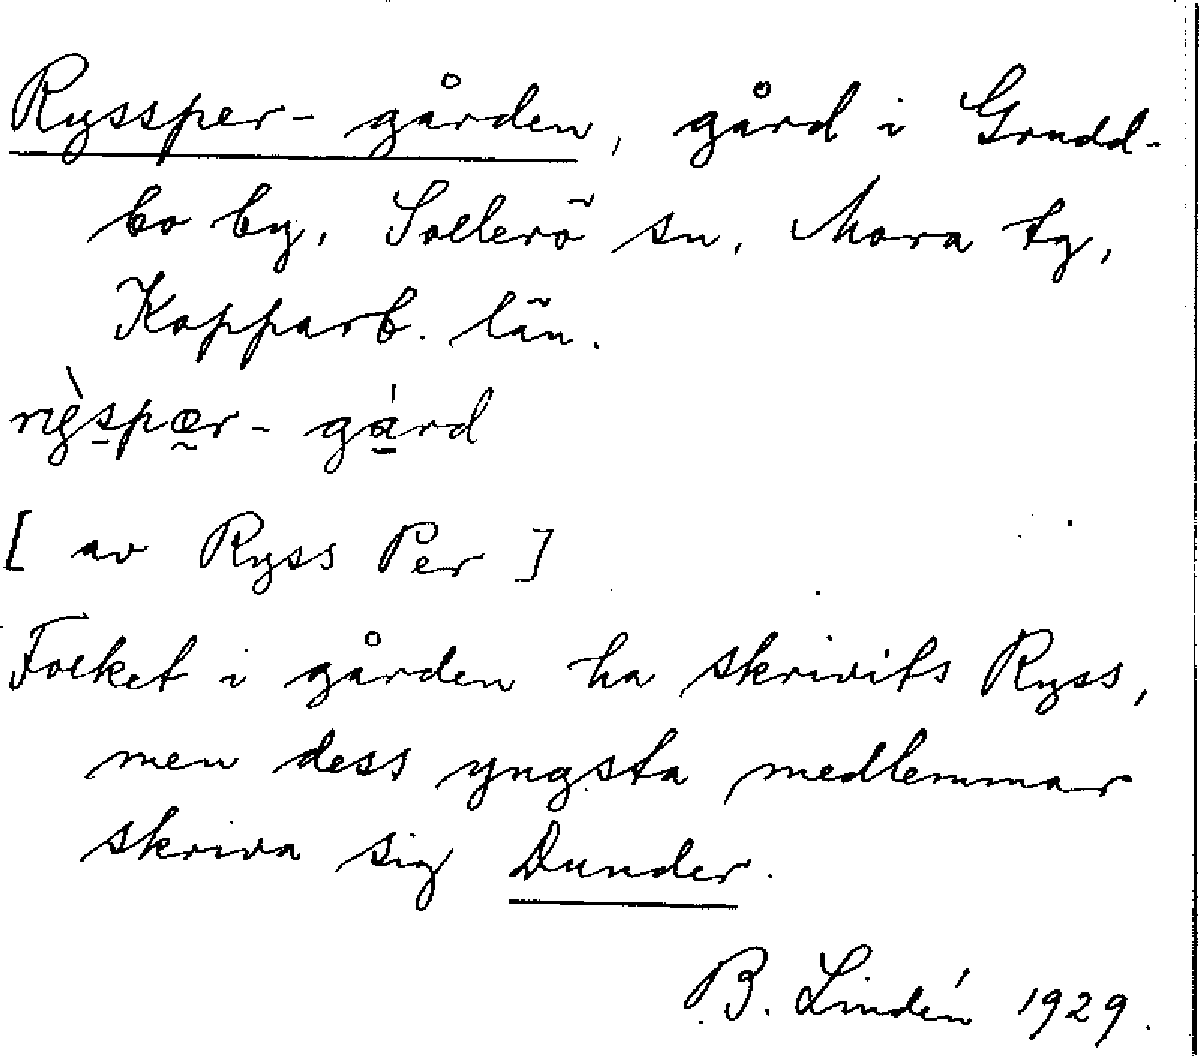 Ryssper-gården, gård i Grudd-
bo by, Sollerö sn, Mora tg,
Kopparb. län.
spær-gård
[ av Ryss Per ]
Folket i gården ha skrivits Ryss,
men dess yngsta medlemmar
skriva sig Dunder.
B. Lindén 1929.